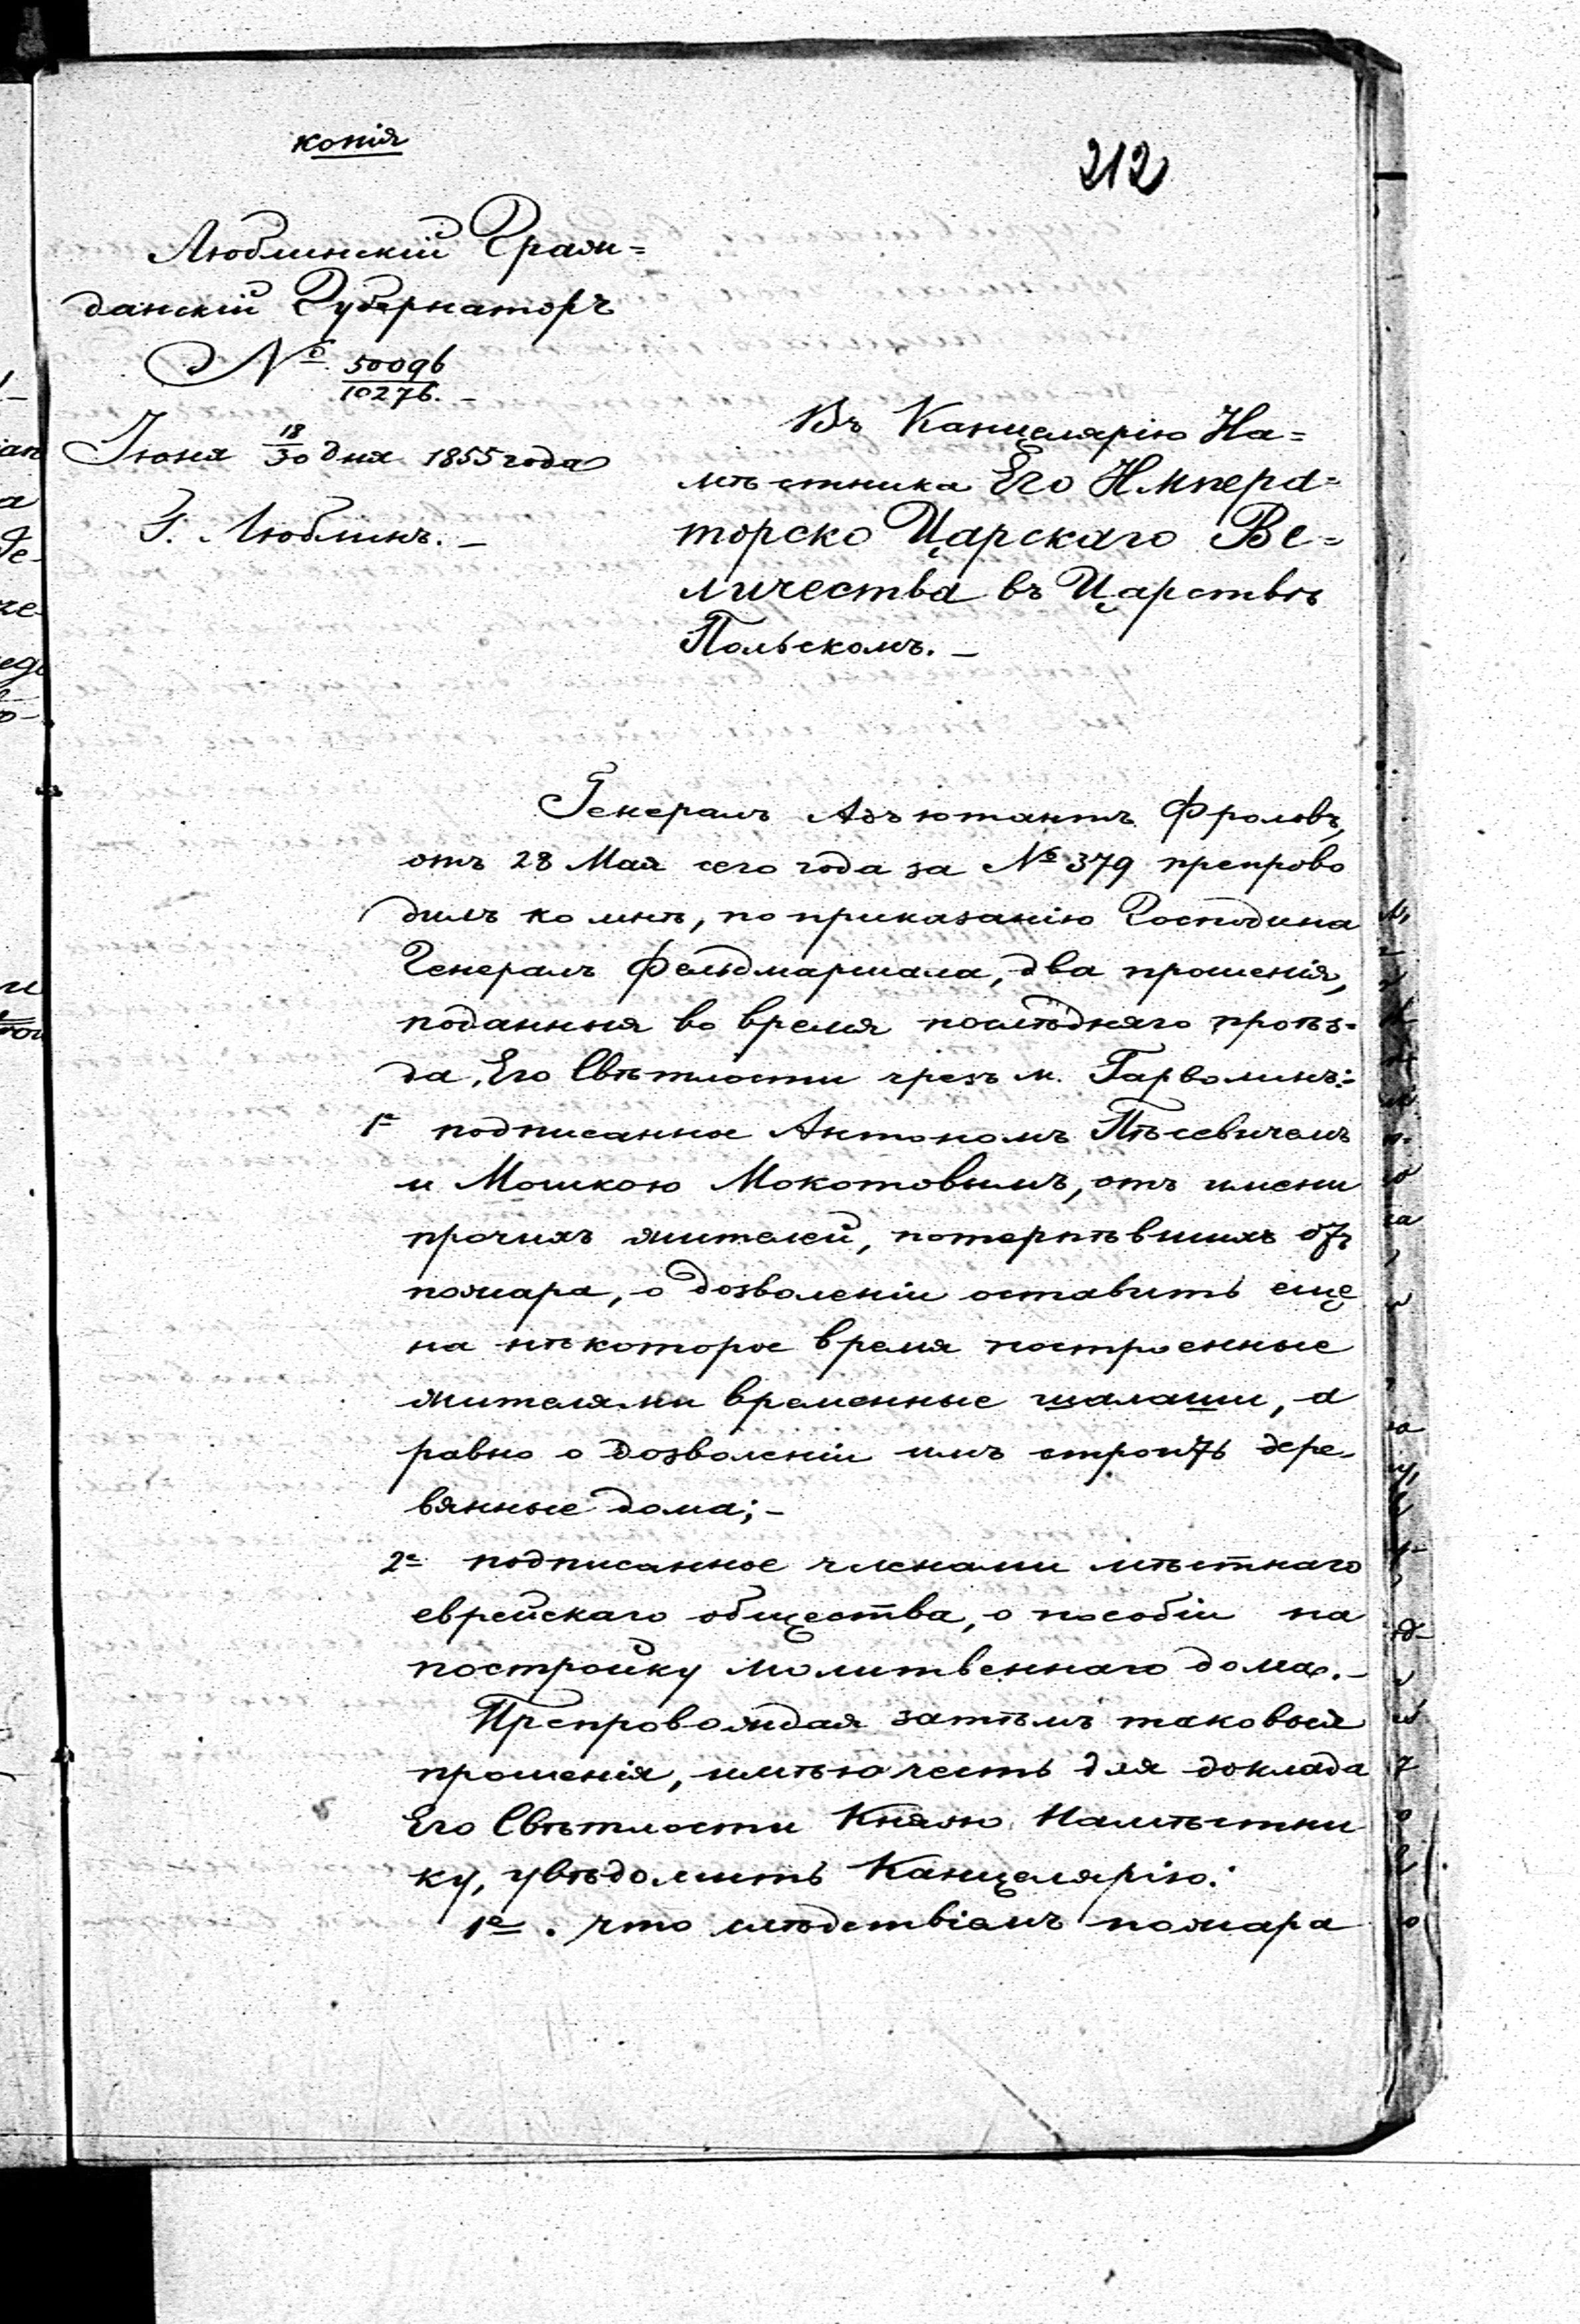 копія
212
Люблинскій Граж=
данскій Губернаторъ
№ 50096
10276. –
Іюня 18/30 дня 1855 года
Г. Люблинъ. –
Въ Канцелярію На=
мѣстника Его Импера=
торско Царскаго Ве=
личества въ Царствѣ
Польскомъ. –
Генералъ Адъютантъ Фроловъ,
отъ 28 Мая сего года за № 379 препрово
дилъ ко мнѣ, по приказанію Господина
Генералъ Фельдмаршала, два прошенія,
поданныя во время послѣдняго проѣз=
да Его Свѣтлости чрезъ м. Гарволинъ:
1е подписанное Антономъ Пѣсевичемъ
и Мошкою Мокотовымъ, отъ имени
прочихъ жителей, потерпѣвшихъ отъ
пожара, о дозволеніи оставить еще
на нѣкоторое время построенные
жителями временные шалаши, а
равно о дозволеніи имъ строить дере-
вянные дома; –
2е подписанное членами мѣстнаго
еврейскаго общества, о пособіи на
постройку молитвеннаго дома. –
Препровождая затѣмъ таковыя
прошенія, имѣю честь для доклада
Его Свѣтлости Князю Намѣстни
ку, увѣдомить Канцелярію:
1е. что слѣдствіемъ пожара